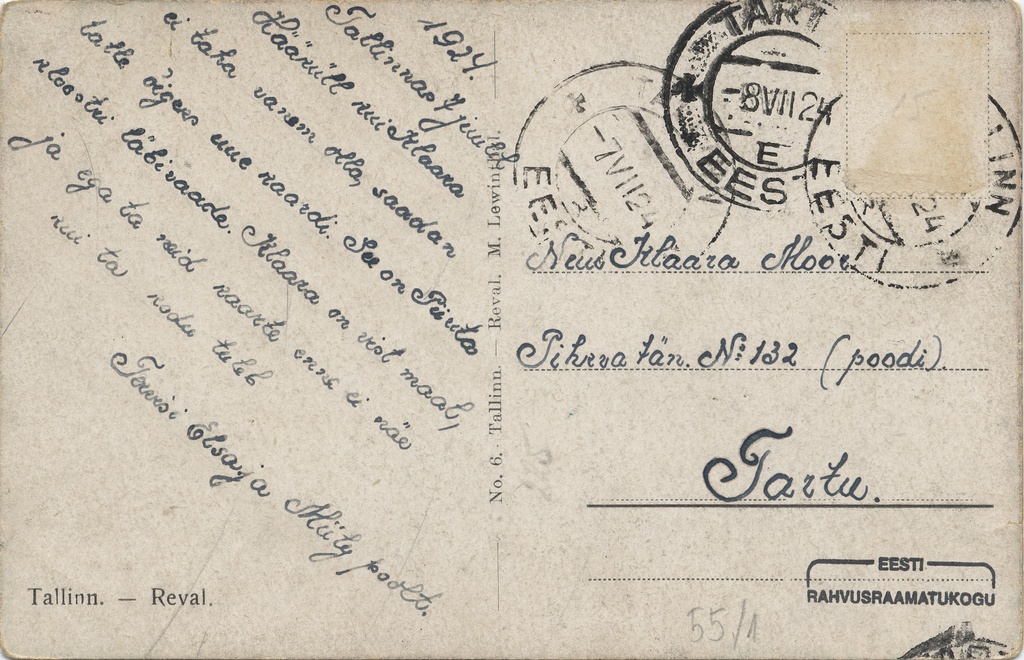 Tallinnas 7 juulil
1924.
Häärüll kui Klaara
ei taha vanem olla, saadan
talle õigem uue kaardi. See on Püüta
kloostri läbivaade. Klaara on vist maal,
ja ega ta neid kaarte enne ei näe
kui ta kodu tuleb
Teversi Elsa ja Müty poolt.
Tallinn. — Reval.
No. 6. Tallinn. — Reval. M.
TART
* EESTI
-8 VII 24
E
* TA
-7 VII 24
EESTI
LINN
EESTI
24
Neiu Klaara Moor
Pihkva tän. № 132 (poodi).
Tartu.
EESTI
RAHVUSRAAMATUKOGU
55/1